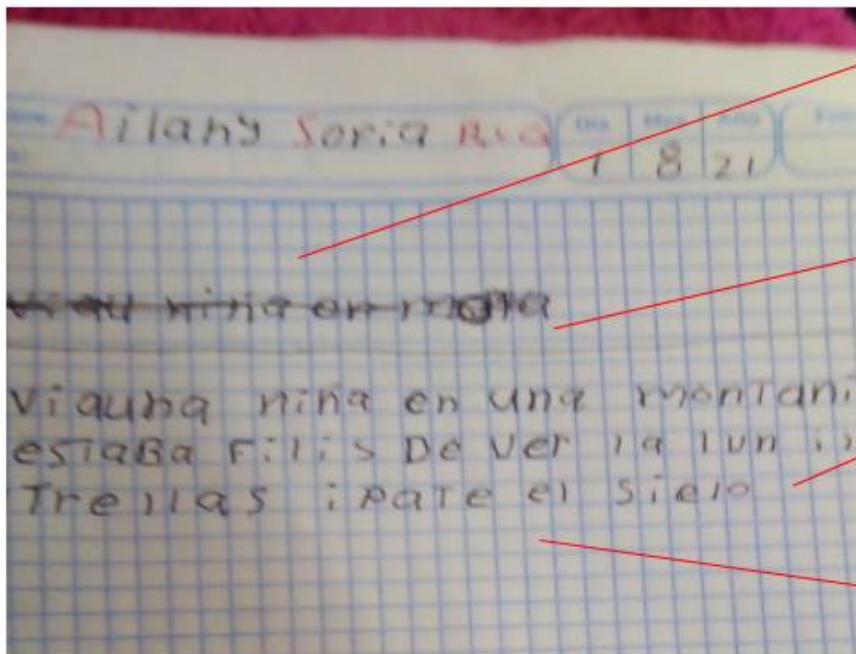 Ailany Soria
Dia Mes Año
1 8 21
niña en
viauna niña en una montañi
estaBa Filis De ver la lun
Trellas ipate el sielo